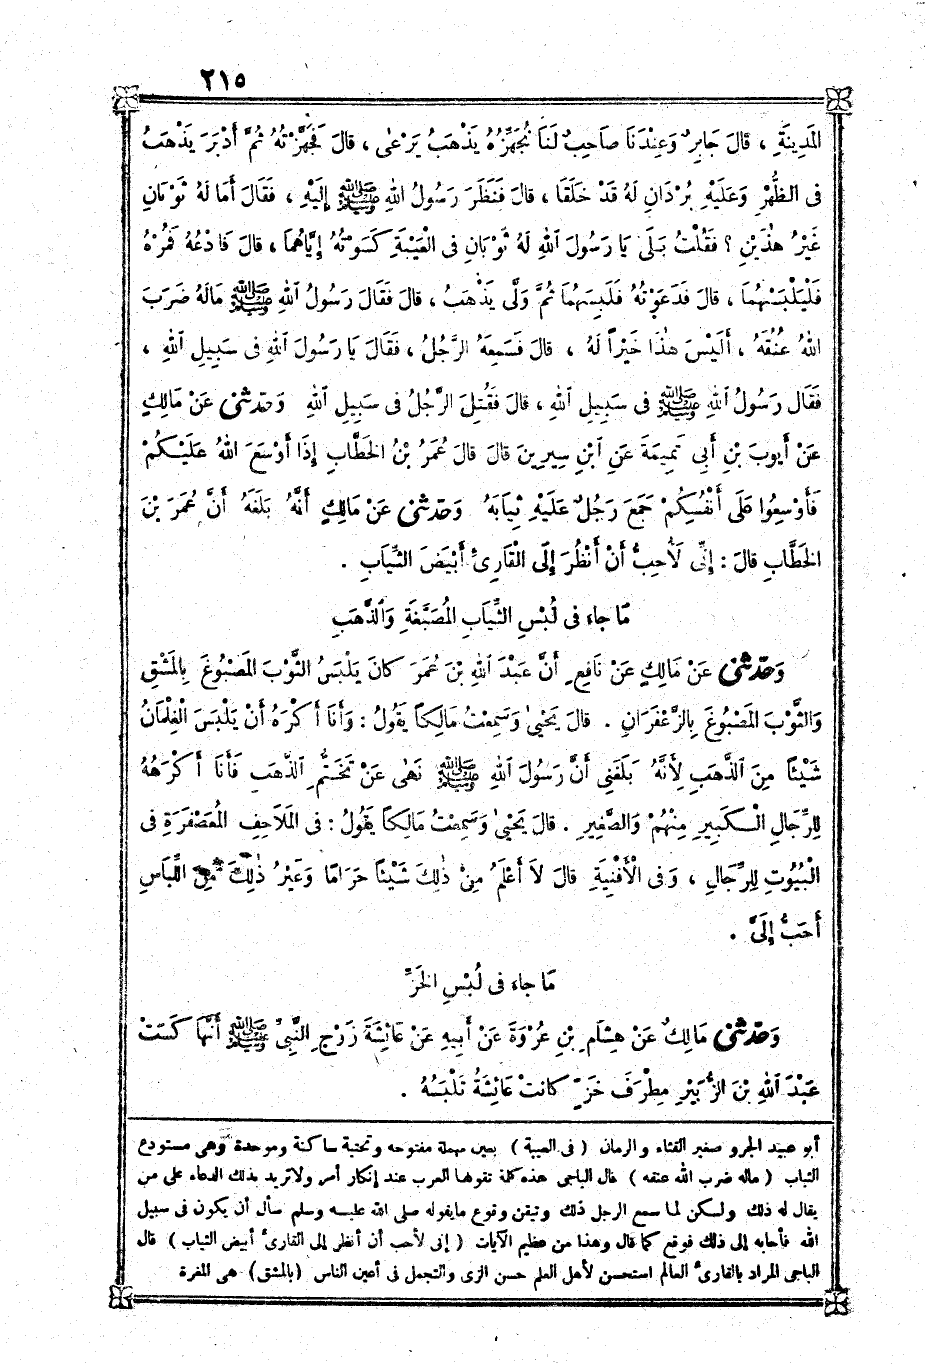 ٢١٥
المَدِينَةِ ، قَالَ جَابِرٌ وَعِنْدَنَا صَاحِبٌ لَنَا نُجَهِّزُهُ يَذْهَبُ يَرْعَى ، قَالَ فَجَهَّزْتُهُ ثُمَّ أَدْبَرَ يَذْهَبُ
فِى الظَّهْرِ وَعَلَيْهِ بُرْدَانِ لَهُ قَدْ خَلَقَا ، قَالَ فَنَظَرَ رَسُولُ اللهِ ﷺ إِلَيْهِ ، فَقَالَ أَمَا لَهُ ثَوْبَانِ
غَيْرُ هٰذَيْنِ ؟ فَقُلْتُ بَلَى يَا رَسُولَ اللهِ لَهُ ثَوْبَانِ فِى الْعَيْبَةِ كَسَوْتُهُ إِيَّاهُمَا ، قَالَ فَادْعُهُ فَمُرْهُ
فَلْيَلْبَسْهُمَا ، قَالَ فَدَعَوْتُهُ فَلَبِسَهُمَا ثُمَّ وَلَّى يَذْهَبُ ، قَالَ فَقَالَ رَسُولُ اللهِ ﷺ مَالَهُ ضَرَبَ
اللهُ عُنُقَهُ ، أَلَيْسَ هٰذَا خَيْراً لَهُ ، قَالَ فَسَمِعَهُ الرَّجُلُ ، فَقَالَ يَا رَسُولَ اللهِ فِى سَبِيلِ اللهِ ،
فَقَالَ رَسُولُ اللهِ ﷺ فِى سَبِيلِ اللهِ ، قَالَ فَقُتِلَ الرَّجُلُ فِى سَبِيلِ اللهِ وَحَدّثنى عَنْ مَالِكٍ
عَنْ أَيُوبَ بْنِ أَبِى تَمِيمَةَ عَنِ ابْنِ سِيرِينَ قَالَ قَالَ عُمَرُ بْنُ الخَطَّابِ إِذَا أَوْسَعَ اللهُ عَلَيْكُمْ
فَأَوْسِعُوا عَلَى أَنْفُسِكُمْ جَمَعَ رَجُلٌ عَلَيْهِ ثِيَابَهُ وَحَدّثنى عَنْ مَالِكٍ أَنَّهُ بَلَغَهُ أَنَّ عُمَرَ بْنَ
الخَطَّابِ قَالَ : إِنِّى لَأُحِبُّ أَنْ أَنْظُرَ إِلَى الْقَارِئِ أَبْيَضَ الثِّيَابِ .
مَا جاء فى لُبْسِ الثِّيَابِ المُصَبَّغَةِ وَالذَّهَبِ
وَحَدّثنى عَنْ مَالِكٍ عَنْ نَافِعٍ أَنَّ عَبْدَ اللهِ بْنَ عُمَرَ كَانَ يَلْبَسُ الثَّوْبَ المَصْبُوغَ بِالمَشْقِ
وَالثَّوْبَ المَصْبُوغَ بِالزَّعْفَرَانِ . قَالَ يَحْيَى وَسَمِعْتُ مَالِكاً يَقُولُ : وَأَنَا أَكْرَهُ أَنْ يَلْبَسَ الْغِلْمَانُ
شَيْئاً مِنَ الذَّهَبِ لِأَنَّهُ بَلَغَنِى أَنَّ رَسُولَ اللهِ ﷺ نَهَى عَنْ تَخَتُّمِ الذَّهَبِ فَأَنَا أَكْرَهُهُ
لِلرِّجَالِ الْكَبِيرِ مِنْهُمْ وَالصَّغِيرِ . قَالَ يَحْيَى وَسَمِعْتُ مَالِكاً يَقُولُ : فِى المَلَاحِفِ الْمُعَصْفَرَةِ فِى
الْبُيُوتِ لِلرِّجَالِ ، وَفِى الْأَفْنِيَةِ قَالَ لَا أَعْلَمُ مِنْ ذٰلِكَ شَيْئاً حَرَامًا وَغَيْرُ ذٰلِكَ مِنَ اللِّبَاسِ
أَحَبُّ إِلَىَّ .
مَا جاء فى لُبْسِ الخَزِّ
وَحَدّثنى مَالِكٌ عَنْ هِشَامِ بْنِ عُرْوَةَ عَنْ أَبِيهِ عَنْ عَائِشَةَ زَوْجِ النَّبِىِّ ﷺ أَنَّهَا كَسَتْ
عَبْدَ اللهِ بْنَ الزُّبَيْرِ مِطْرَفَ خَزٍّ كَانَتْ عَائِشَةُ تَلْبَسُهُ .
أبو عبيد الجرو صغير القثاء والرمان ( فى العيبة ) بعين مهملة مفتوحه وتحتية ساكنة وموحدة وهى مستودع
الثياب ( ماله ضرب الله عنقه ) قال الباجى هذه كلمة تقولها العرب عند إنكار أمر ولا تريد بذلك الدعاء على من
يقال له ذلك ولكن لما سمع الرجل ذلك وتيقن وقوع مايقوله صلى الله عليه وسلم سأل أن يكون فى سبيل
الله فأجابه إلى ذلك فوقع كما قال وهذا من عظيم الآيات ( إنى لأحب أن أنظر إلى القارئ أبيض الثياب ) قال
الباجى المراد بالقارئ العالم استحسن لأهل العلم حسن الزى والتجمل فى أعين الناس (بالمشق) هى المغرة